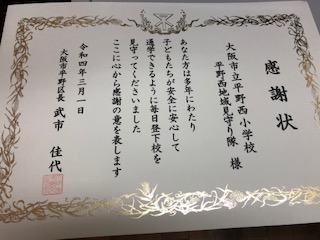 感謝状
大阪市立平野西小学校
平野西地域見守り隊 様
あなた方は多年にわたり
子どもたちが安全に安心して
通学できるように毎日登下校を
見守ってくださいました
ここに心から感謝の意を表します
令和四年三月一日
大阪市平野区長 武市 佳代